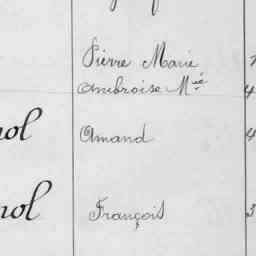 Pierre Marie
Ambroise Mié
Amand
François